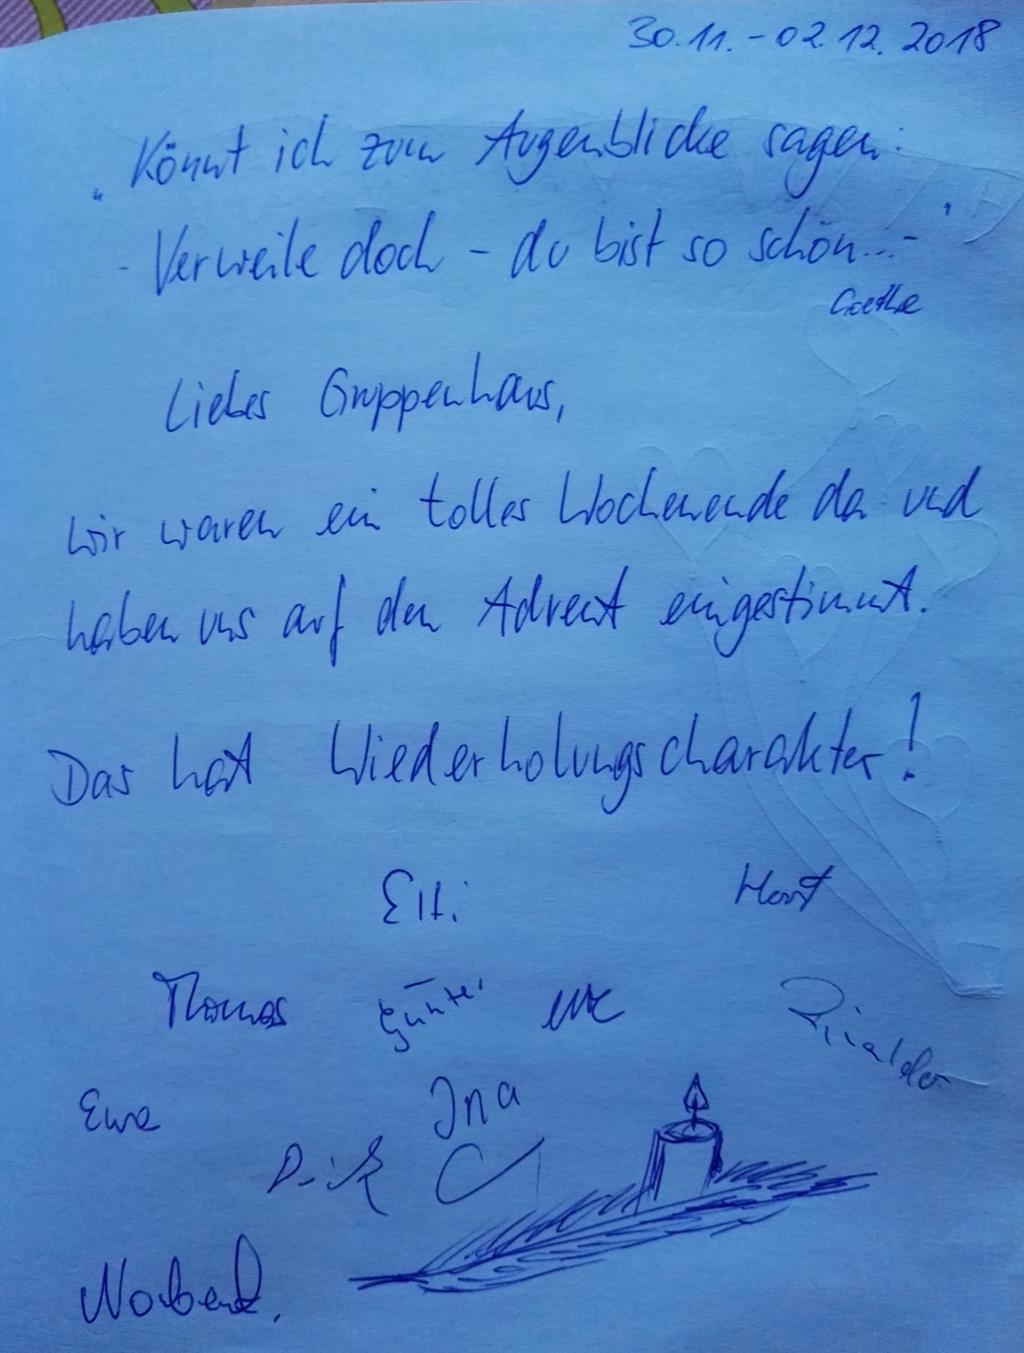 30.11. - 02.12. 2018
„Könnt ich zum Augenblicke sagen:
- Verweile doch - du bist so schön...- "
Goethe
Liebes Gruppenhaus,
wir waren ein tolles Wochenende da und
haben uns auf den Advent eingestimmt.
Das hat Wiederholungscharakter!
Elfi Horst
Thomas Günter Uwe
Ewa Ina
Dirk
Norbert